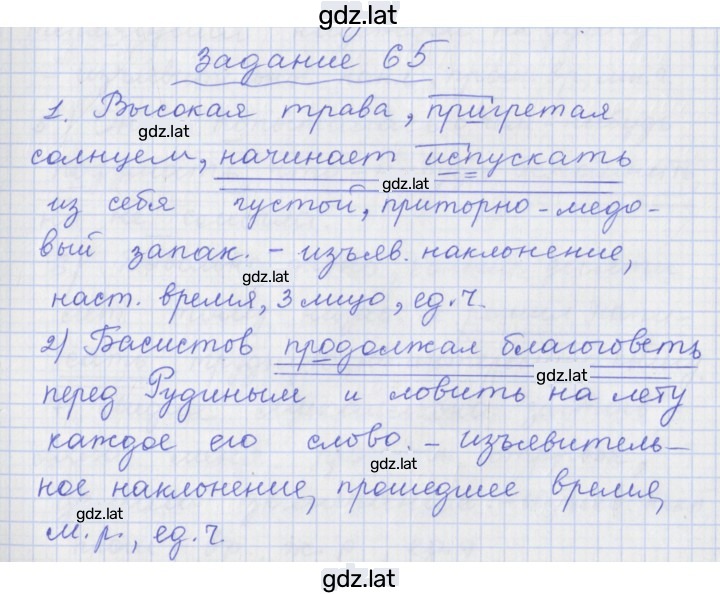 gdz.lat
Задание 65
1. Высокая трава, пригретая
gdz.lat
солнцем, начинает испускать
gdz.lat
из себя густой, приторно-медо-
вый запах. - изъяв. наклонение,
gdz.lat
наст. время, 3 лицо, ед.ч.
2) Басистов продолжал благоговеть
gdz.lat
перед Рудиным и ловить на лету
каждое его слово. - изъявитель-
gdz.lat
ное наклонение, прошедшее время,
gdz.lat
м.р., ед.ч.
gdz.lat